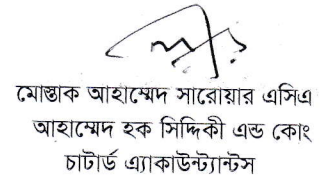 মোস্তাক আহাম্মেদ সারোয়ার এসিএ
আহাম্মেদ হক সিদ্দিকী এন্ড কোং
চাটার্ড এ্যাকাউন্ট্যান্টস